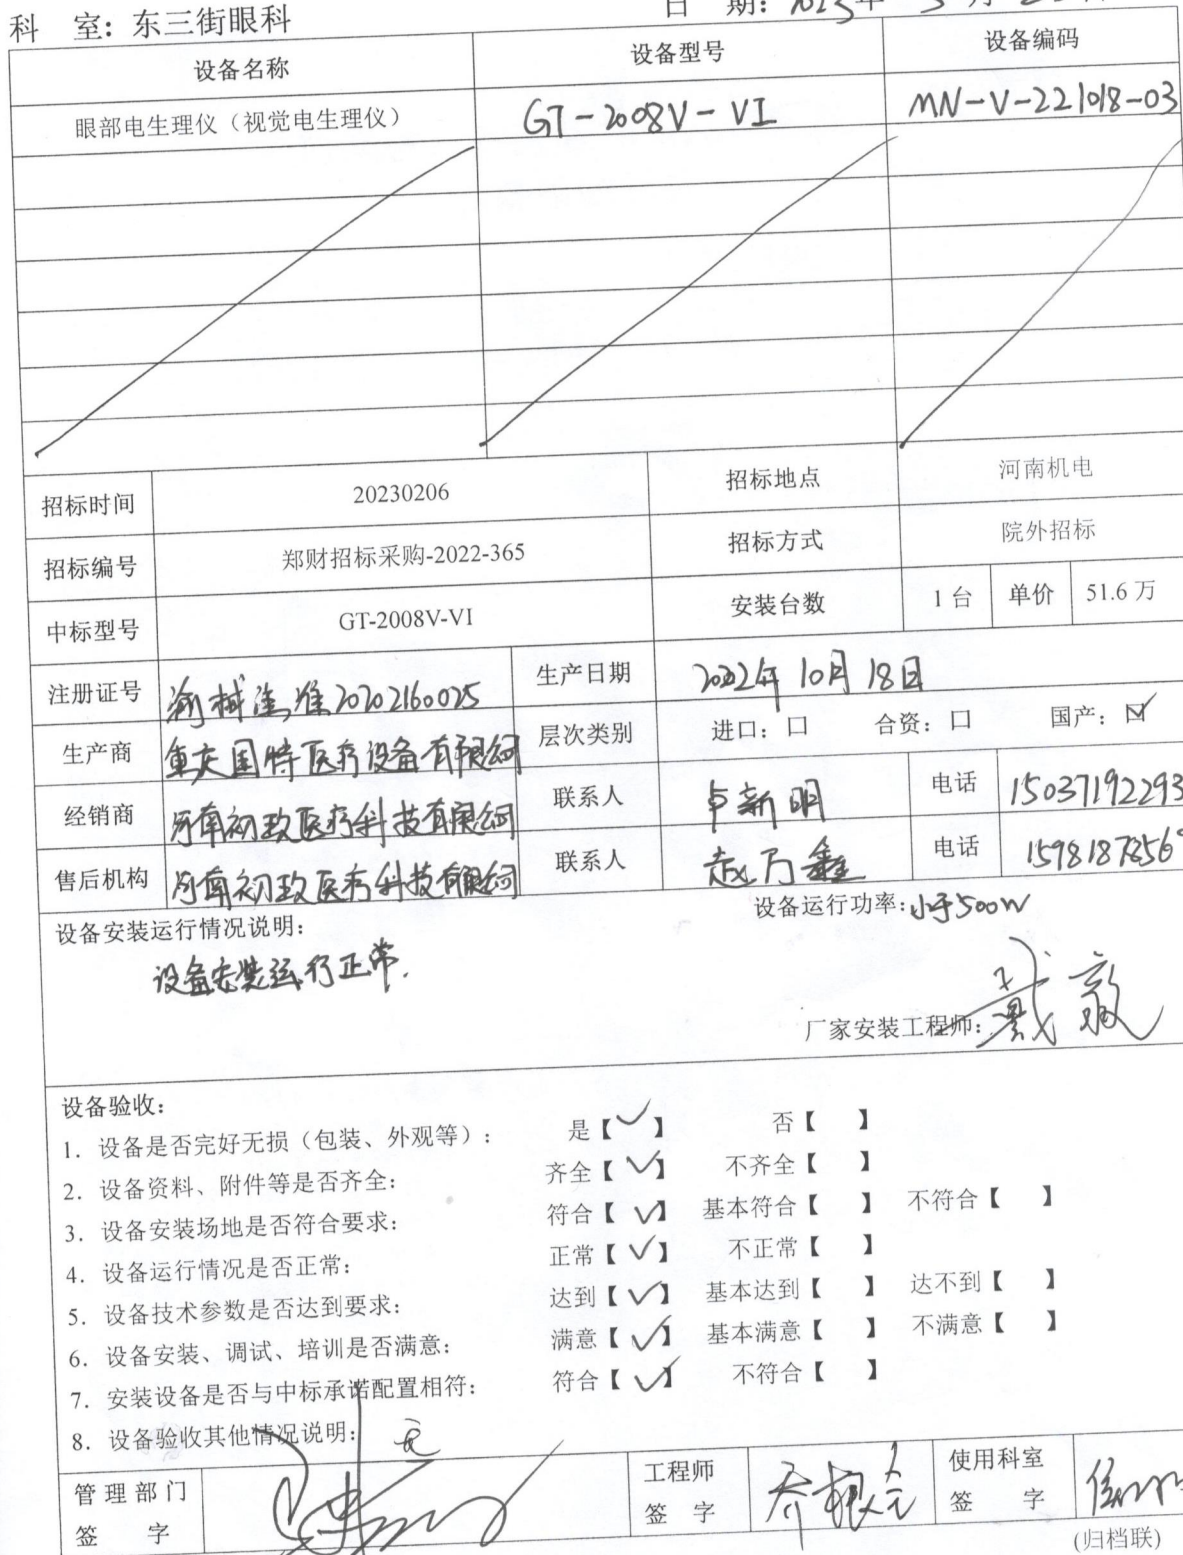 科 室: 东三街眼科 日 期: 2023年 3月
设备名称 设备型号 设备编码
眼部电生理仪（视觉电生理仪） GT-2008V-VI MN-V-221018-03
招标时间 20230206 招标地点 河南机电
招标编号 郑财招标采购-2022-365 招标方式 院外招标
中标型号 GT-2008V-VI 安装台数 1台 单价 51.6万
注册证号 渝械注准20202160025 生产日期 2022年10月18日
生产商 重庆国特医疗设备有限公司 层次类别 进口: 口 合资: 口 国产: 口✓
经销商 河南初玫医疗科技有限公司 联系人 卢新明 电话 15037192293
售后机构 河南初玫医疗科技有限公司 联系人 赵万鑫 电话 1598187856
设备安装运行情况说明: 设备运行功率: 小于500W
设备安装运行正常.
厂家安装工程师: 戴敬
设备验收:
1. 设备是否完好无损（包装、外观等）: 是【✓】 否【 】
2. 设备资料、附件等是否齐全: 齐全【✓】 不齐全【 】
3. 设备安装场地是否符合要求: 符合【✓】 基本符合【 】 不符合【 】
4. 设备运行情况是否正常: 正常【✓】 不正常【 】
5. 设备技术参数是否达到要求: 达到【✓】 基本达到【 】 达不到【 】
6. 设备安装、调试、培训是否满意: 满意【✓】 基本满意【 】 不满意【 】
7. 安装设备是否与中标承诺配置相符: 符合【✓】 不符合【 】
8. 设备验收其他情况说明: 无
管理部门 工程师 使用科室
签 字 签 字 签 字
(归档联)